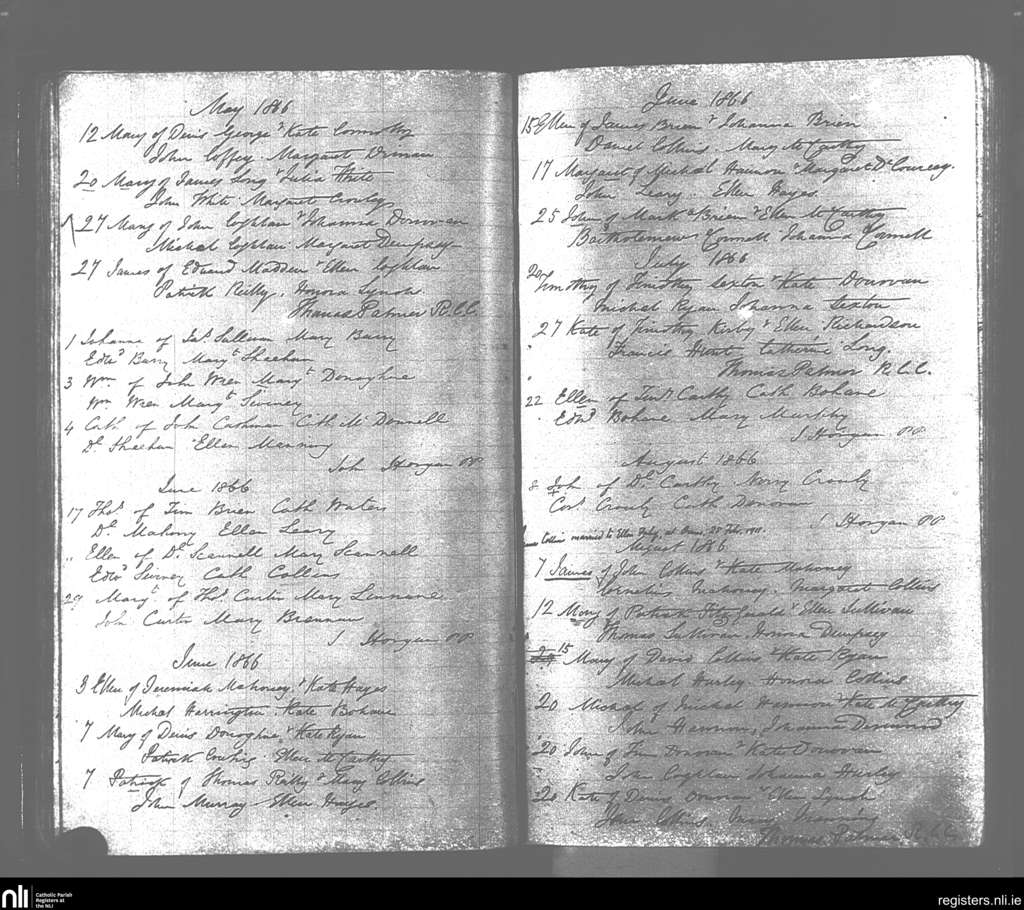 May 1866
12 Mary of Denis George & Kate Connolly
John Coffey. Margaret
20 Mary of James Long & Julia White
John White Margaret Crowley
27 Mary of John Coghlan & Johanna Donovan
Michael Coghlan Margaret Dempsey
27 James of Edward Madden & Ellen Coghlan
Patrick Reilly. Honora Lynch
Thomas Palmer R.C.C.
1 Johanna of Sullivan Mary Barry
Edwd Barry Margt Sheehan
3 Wm of John Wren Margt Donoghue
Wm Wren Margt Swiney
4 Cath of John Cashman Cath McDonnell
Dl Sheehan Ellen Manning
John Horgan PP
June 1866
17 Thos of Tim Brien Cath Waters
Dl Mahony Ellen Leary
" Ellen of Dl Scannell Mary Scannell
Edwd Swiney Cath Collins
29 Margt of Thos Curtin Mary Linnane
John Curtin Mary Brennan
J Horgan PP
June 1866
3 Ellen of Jeremiah Mahoney & Kate Hayes
Michael Harrington. Kate Bohane
7 Mary of Denis Donoghue & Kate Ryan
Patrick Ellen McCarthy
7 Patrick of Thomas & Mary Collins
John Murray Ellen Hayes
June 1866
15 Ellen of James Brien & Johanna Brien
Daniel Collins. Mary McCarthy
17 Margaret of Michael Hannon & Margaret De Courcey.
John Leary Ellen Hayes
25 John of Mark Brien & Ellen McCarthy
Bartholemew Connell Johanna Connell
July 1866
20 Timothy of Timothy Sexton & Kate Donovan
Michael Ryan Johanna Sexton
27 Kate of Timothy Kirby & Ellen Richardson
Francis Hunt Catherine Long.
Thomas Palmer R.C.C.
22 Ellen of Timt Carthy Cath Bohane
Edwd Bohane Mary Murphy
J Horgan PP
August 1866
8 John of Dl Carthy Nory Crowly
Cors Crowly Cath Donovan
J Horgan PP
James Collins married to Ellen at 1911.
August 1866
7 James of John Collins & Kate Mahoney
Cornelius Mahoney. Margaret Collins
12 Mary of Patrick Fitzgerald & Ellen Sullivan
Thomas Sullivan. Honora Dempsey
15 Mary of David Collins & Kate Ryan
Michael Hurley Honora Collins
20 Michael of Michael Hannon & Kate McCarthy
John Hannon, Johanna Desmond
20 John of Tim Donovan & Kate Donovan
John Coghlan Johanna Hurley
20 Kate of Denis Donovan & Ellen Lynch
John Collins. Mary
Thomas Palmer R.C.C.
nli
Catholic Parish
Registers at
the NLI
registers.nli.ie